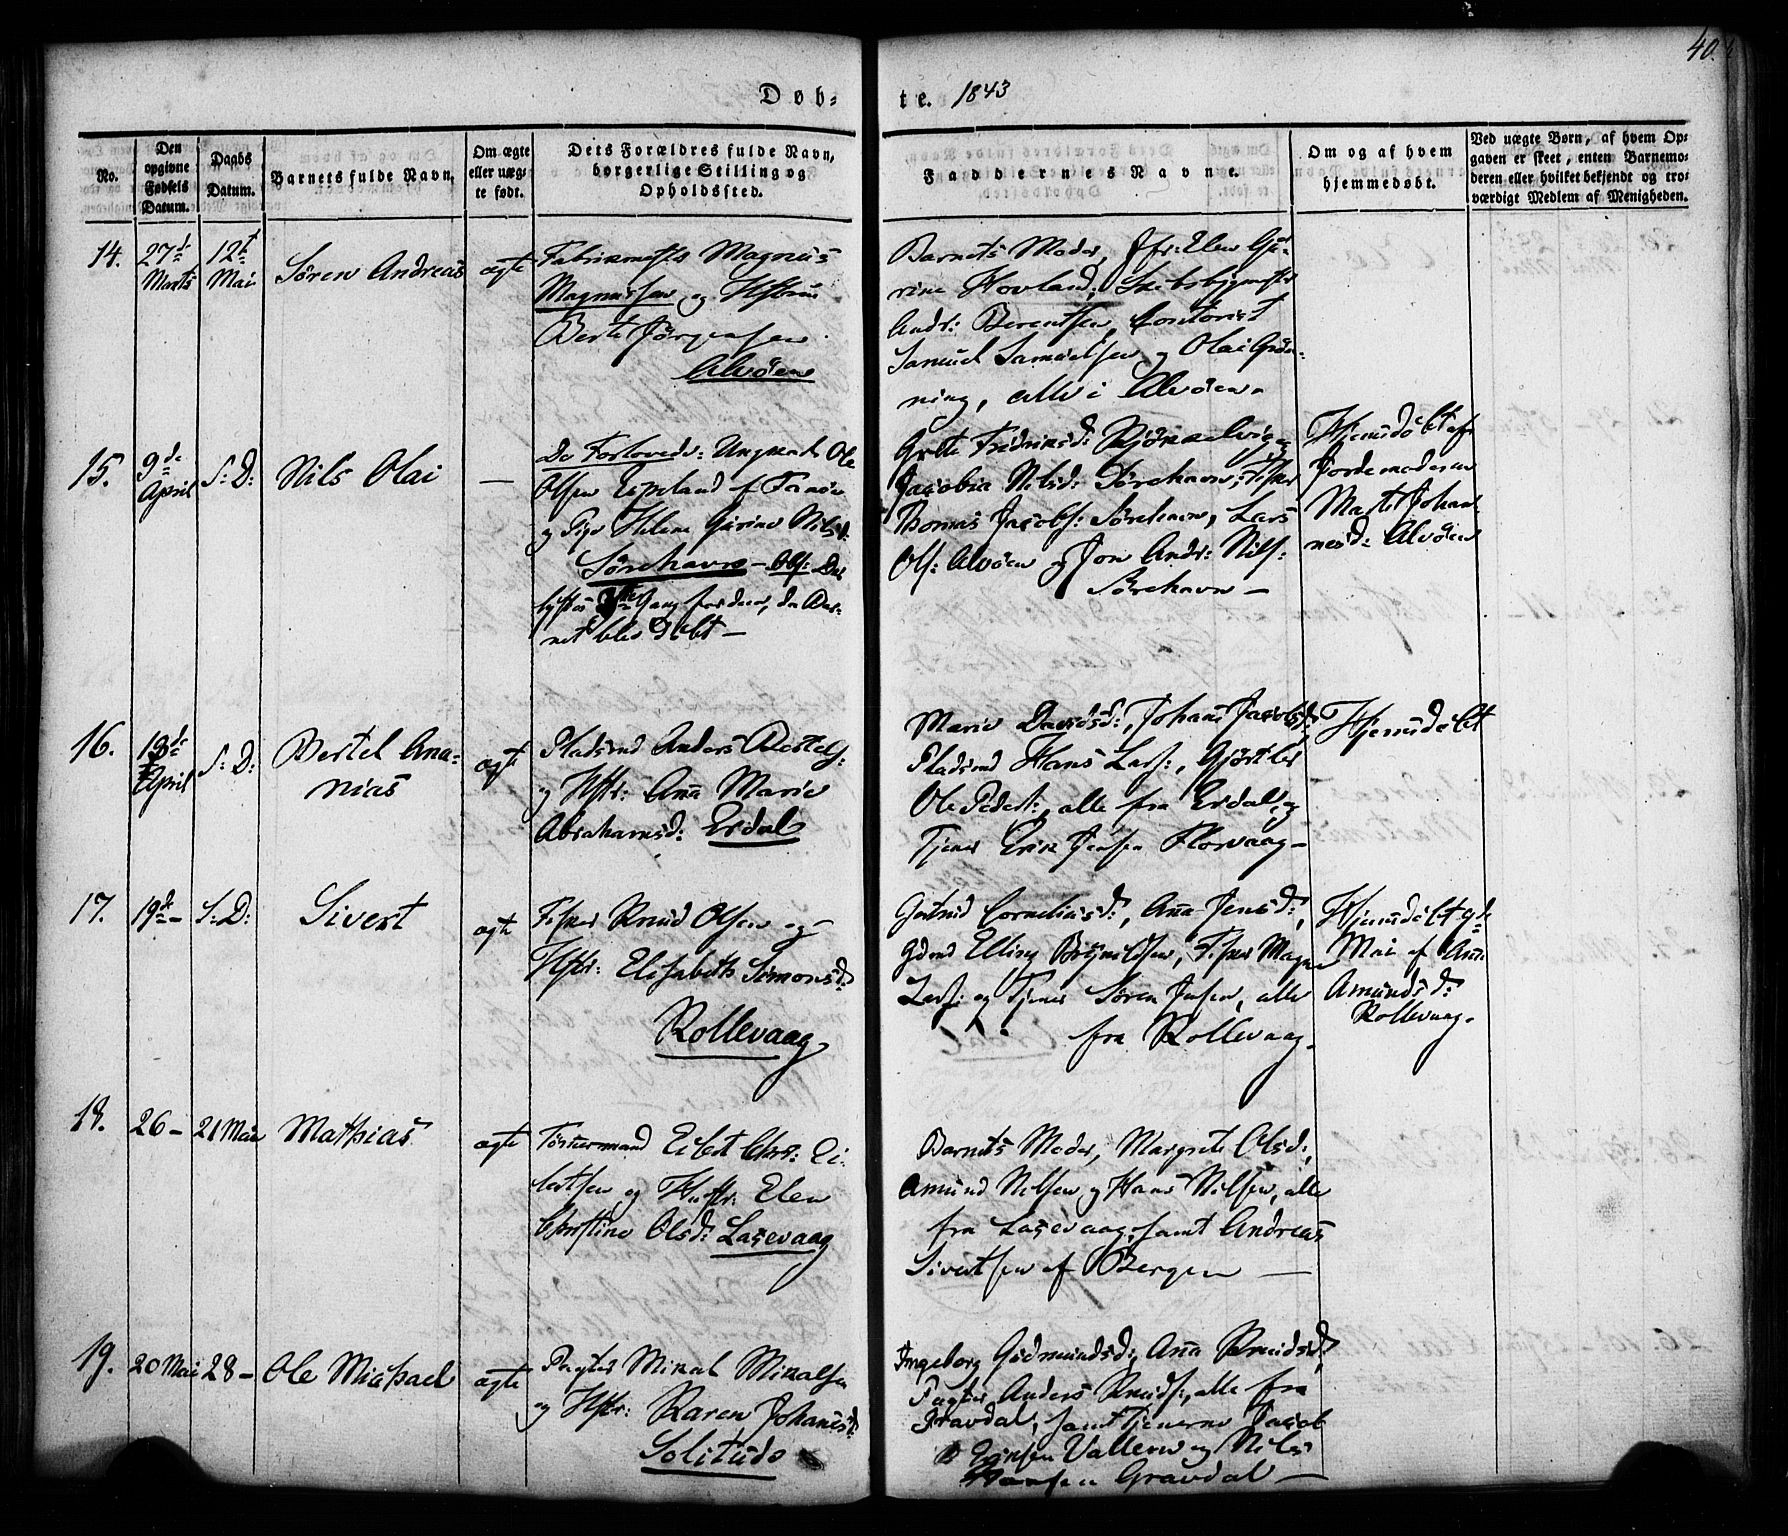 40.
Døb-
te. 1843
No.
Den opgivne Fødsels Datum.
Daabs Datum.
Barnets fulde Navn.
Om ægte eller uægte født.
Dets Forældres fulde Navn, borgerlige Stilling og Opholdssted.
Faddernes Navne.
Om og af hvem hjemmedøbt.
Ved uægte Børn, af hvem Opgaven er skeet, enten Barnemoderen eller hvilket bekjendt og troværdigt Medlem af Menigheden.
14.
27de Marts
12te Mai
Søren Andreas
ægte
Magnus
Magnussen og Hstru
Berte Jørgensen
Alvøen
Barnets Moder, Jfr: Elen Gu-
rine Hovland, Skibsbygmester
Andr: Berentsen, Contorist
Samuel Samuelsen og Olai Grøn-
ning, alle i Alvøen
15.
9de April
S: D:
Nils Olai
—
De Forlovede: Ungkarl Ole
Olsen Espeland
og Pige Helene Gurine Nilsd:
Sørehavn —
Gang for dem, da Bar-
net blev Døbt —
Jacobia Nilsd: Sørehavn, Fisker
Thomas Jacobs: Sørehavn, Lars
Ols: Alvøen og Jon Andr: Nils:
Sørehavn —
Hjemmedøbt af
Jordemoderen
Marte Johan-
nesd: Alvøen
16.
April
S: D:
Bertel Ana-
nias
ægte
Pladsmd Anders Bertels:
og Hstr: Ana Marie
Abrahamsd: Erdal
Marie Davidsd:, Johane Jacobsd:
Pladsmd Hans Lars:, Gjørtler
Ole Peders:, alle fra Erdal, og
Tjener Erik Jensen Florvaag —
Hjemmedøbt
17.
19de —
S: D:
Sivert
ægte
Fisker Knud Olsen og
Hstr: Elisabeth Simonsd:
Rollevaag
Gertrud Corneliusd:, Ana Jensd:,
Gdmd Elling Brynildsen, Fisker Magne
Lars: og Tjener Søren Jensen, alle
fra Rollevaag.
Hjemmedøbt 9de
Mai af Ane
Amundsd:
Rollevaag.
18.
26 —
21 Mai
Mathias
ægte
Tømmermand Eilert Chrs: Ei-
lertsen og Hustr: Elen
Christine Olsd: Laxevaag
Barnets Moder, Margrete Olsd:,
Amund Nilsen og Hans Nilsen, alle
fra Laxevaag, samt Andreas
Sivertsen af Bergen —
19.
20 Mai
28 —
Ole Michael
ægte
Pagter Mikal Mikalsen
og Hstr: Karen Johanesd:
Solitude
Ingeborg Gudmundsd:, Ana Knudsd:,
Pagter Anders Knuds:, alle fra
Gravdal, samt Tjenerne Jacob
Eriksen Vallem og Nils
Hansen Gravdal —